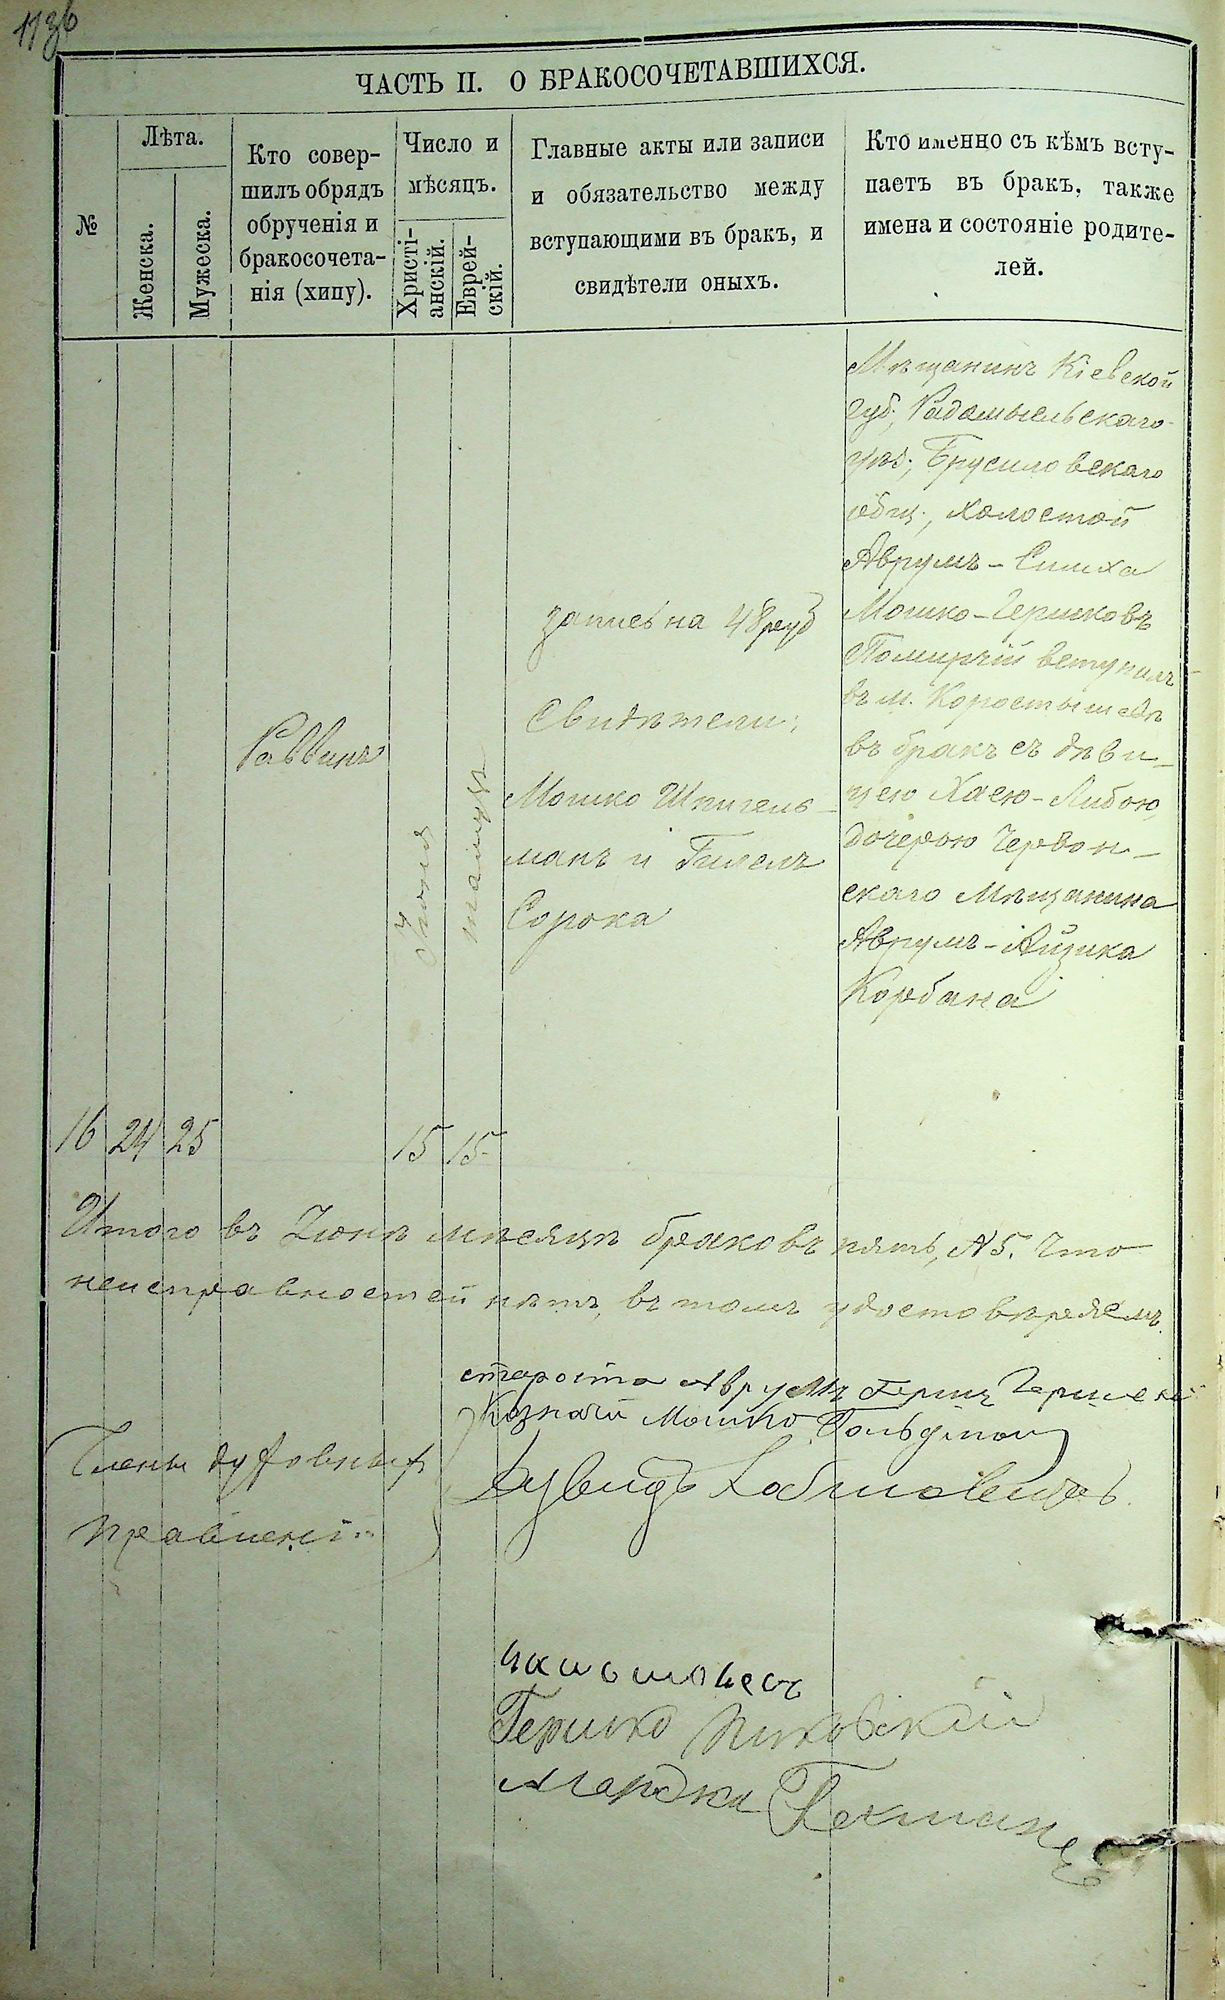 ЧАСТЬ II. О БРАКОСОЧЕТАВШИХСЯ.
№
Лѣта.
Женска.
Мужеска.
Кто совер-
шилъ обрядъ
обрученія и
бракосочета-
нія (хипу).
Число и
мѣсяцъ.
Христі-
анскій.
Еврей-
скій.
Главные акты или записи
и обязательство между
вступающими въ бракъ, и
свидѣтели оныхъ.
Кто именно съ кѣмъ всту-
паетъ въ бракъ, также
имена и состояніе родите-
лей.
16
24
25
Раввинъ
Іюня
15
тамузъ
15
запись на 48 руб
Свидѣтели:
Мошко Шпигель-
манъ и Гилель
Сорока
Мѣщанинъ Кіевской
губ., Радомысльскаго
уѣз., Брусиловскаго
общ., холостой
Аврумъ-Симха
Мошко-Гершковъ
вступилъ
въ м. Коростышевѣ
въ бракъ съ дѣви-
цею Хаею-Либою,
дочерью Червон-
скаго Мѣщанина
Аврумъ-Айзика
Корбана
Итого въ Іюнѣ мѣсяцѣ браковъ пять, №5. Что
неисправностей нѣтъ, въ томъ удостовѣряемъ.
староста Аврумъ Герш
Казначей Мошко Гольдман
Члены духовныхъ
правленій
Дувидъ
Гершко
Мордко